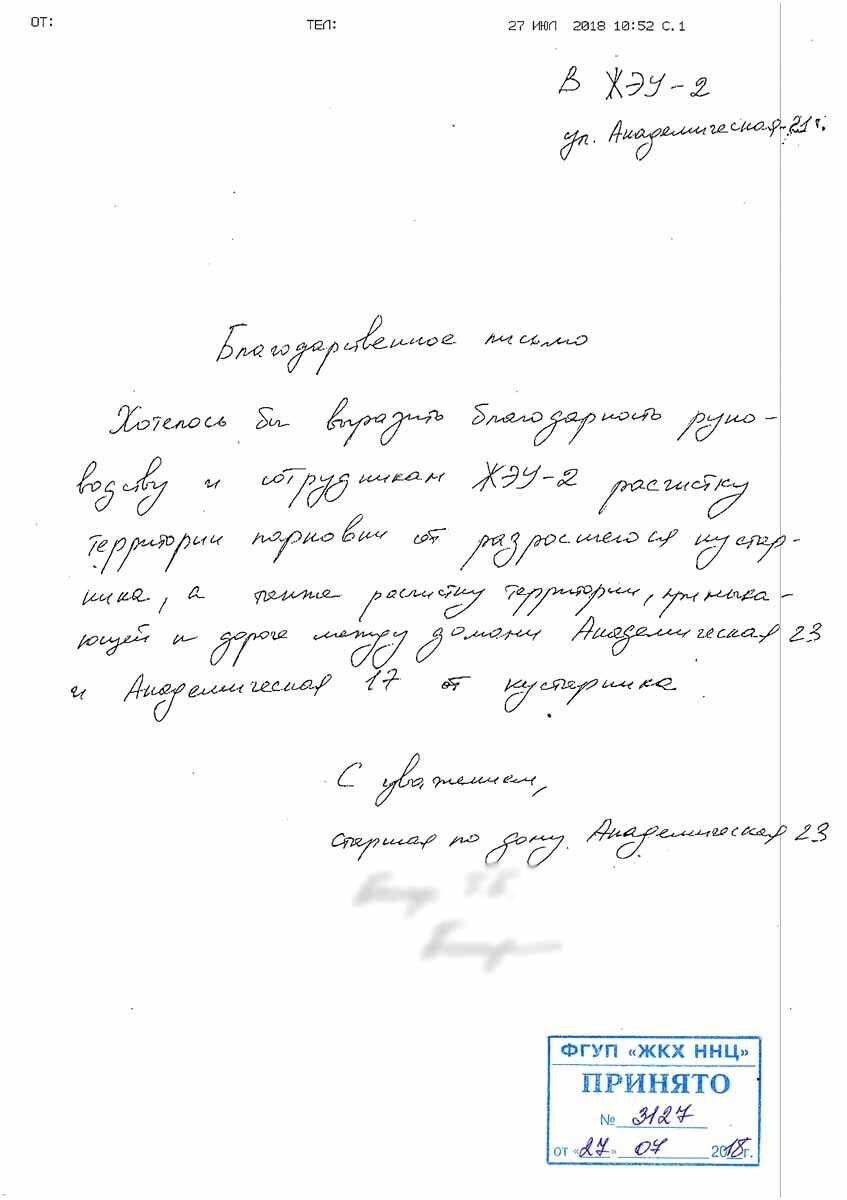 ОТ: ТЕЛ: 27 ИЮЛ 2018 10:52 С.1
В ЖЭУ-2
ул. Академическая-21г.
Благодарственное письмо
Хотелось бы выразить благодарность руко-
водству и сотрудникам ЖЭУ-2 расчистку
территории парковки от разросшегося кустар-
ника, а также расчистку территории, примыка-
ющей к дороге между домами Академическая 23
и Академическая 17 от кустарника.
С уважением,
старшая по дому. Академическая 23
ФГУП «ЖКХ ННЦ»
ПРИНЯТО
№ 3127
от «27» 07 2018г.